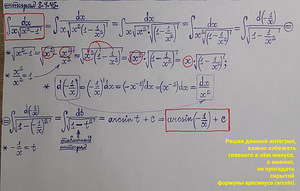 интеграл 8.7.45.
∫ dx / (x√(x²-1)) = ∫ dx / (x√(x²-1)) = ∫ dx / (x√(x²(1-1/x²))) = ∫ dx / (x²√(1-1/x²)) = ∫ d(-1/x) / √(1-1/x²) =
* x²/x² = 1
* d(-1/x) = (-1/x)'dx = (-x⁻¹)'dx = (x⁻²)dx = dx/x²
= ∫ d(-1/x) / √(1-(-1/x)²) = ∫ dt / √(1-t²) = arcsin t + C = arcsin(-1/x) + C
* -1/x = t
табличный
интеграл
Решая данный интеграл,
важно избежать
главного в нём минуса,
а именно,
не прогадать
скрытой
формулы арксинуса (arcsin).